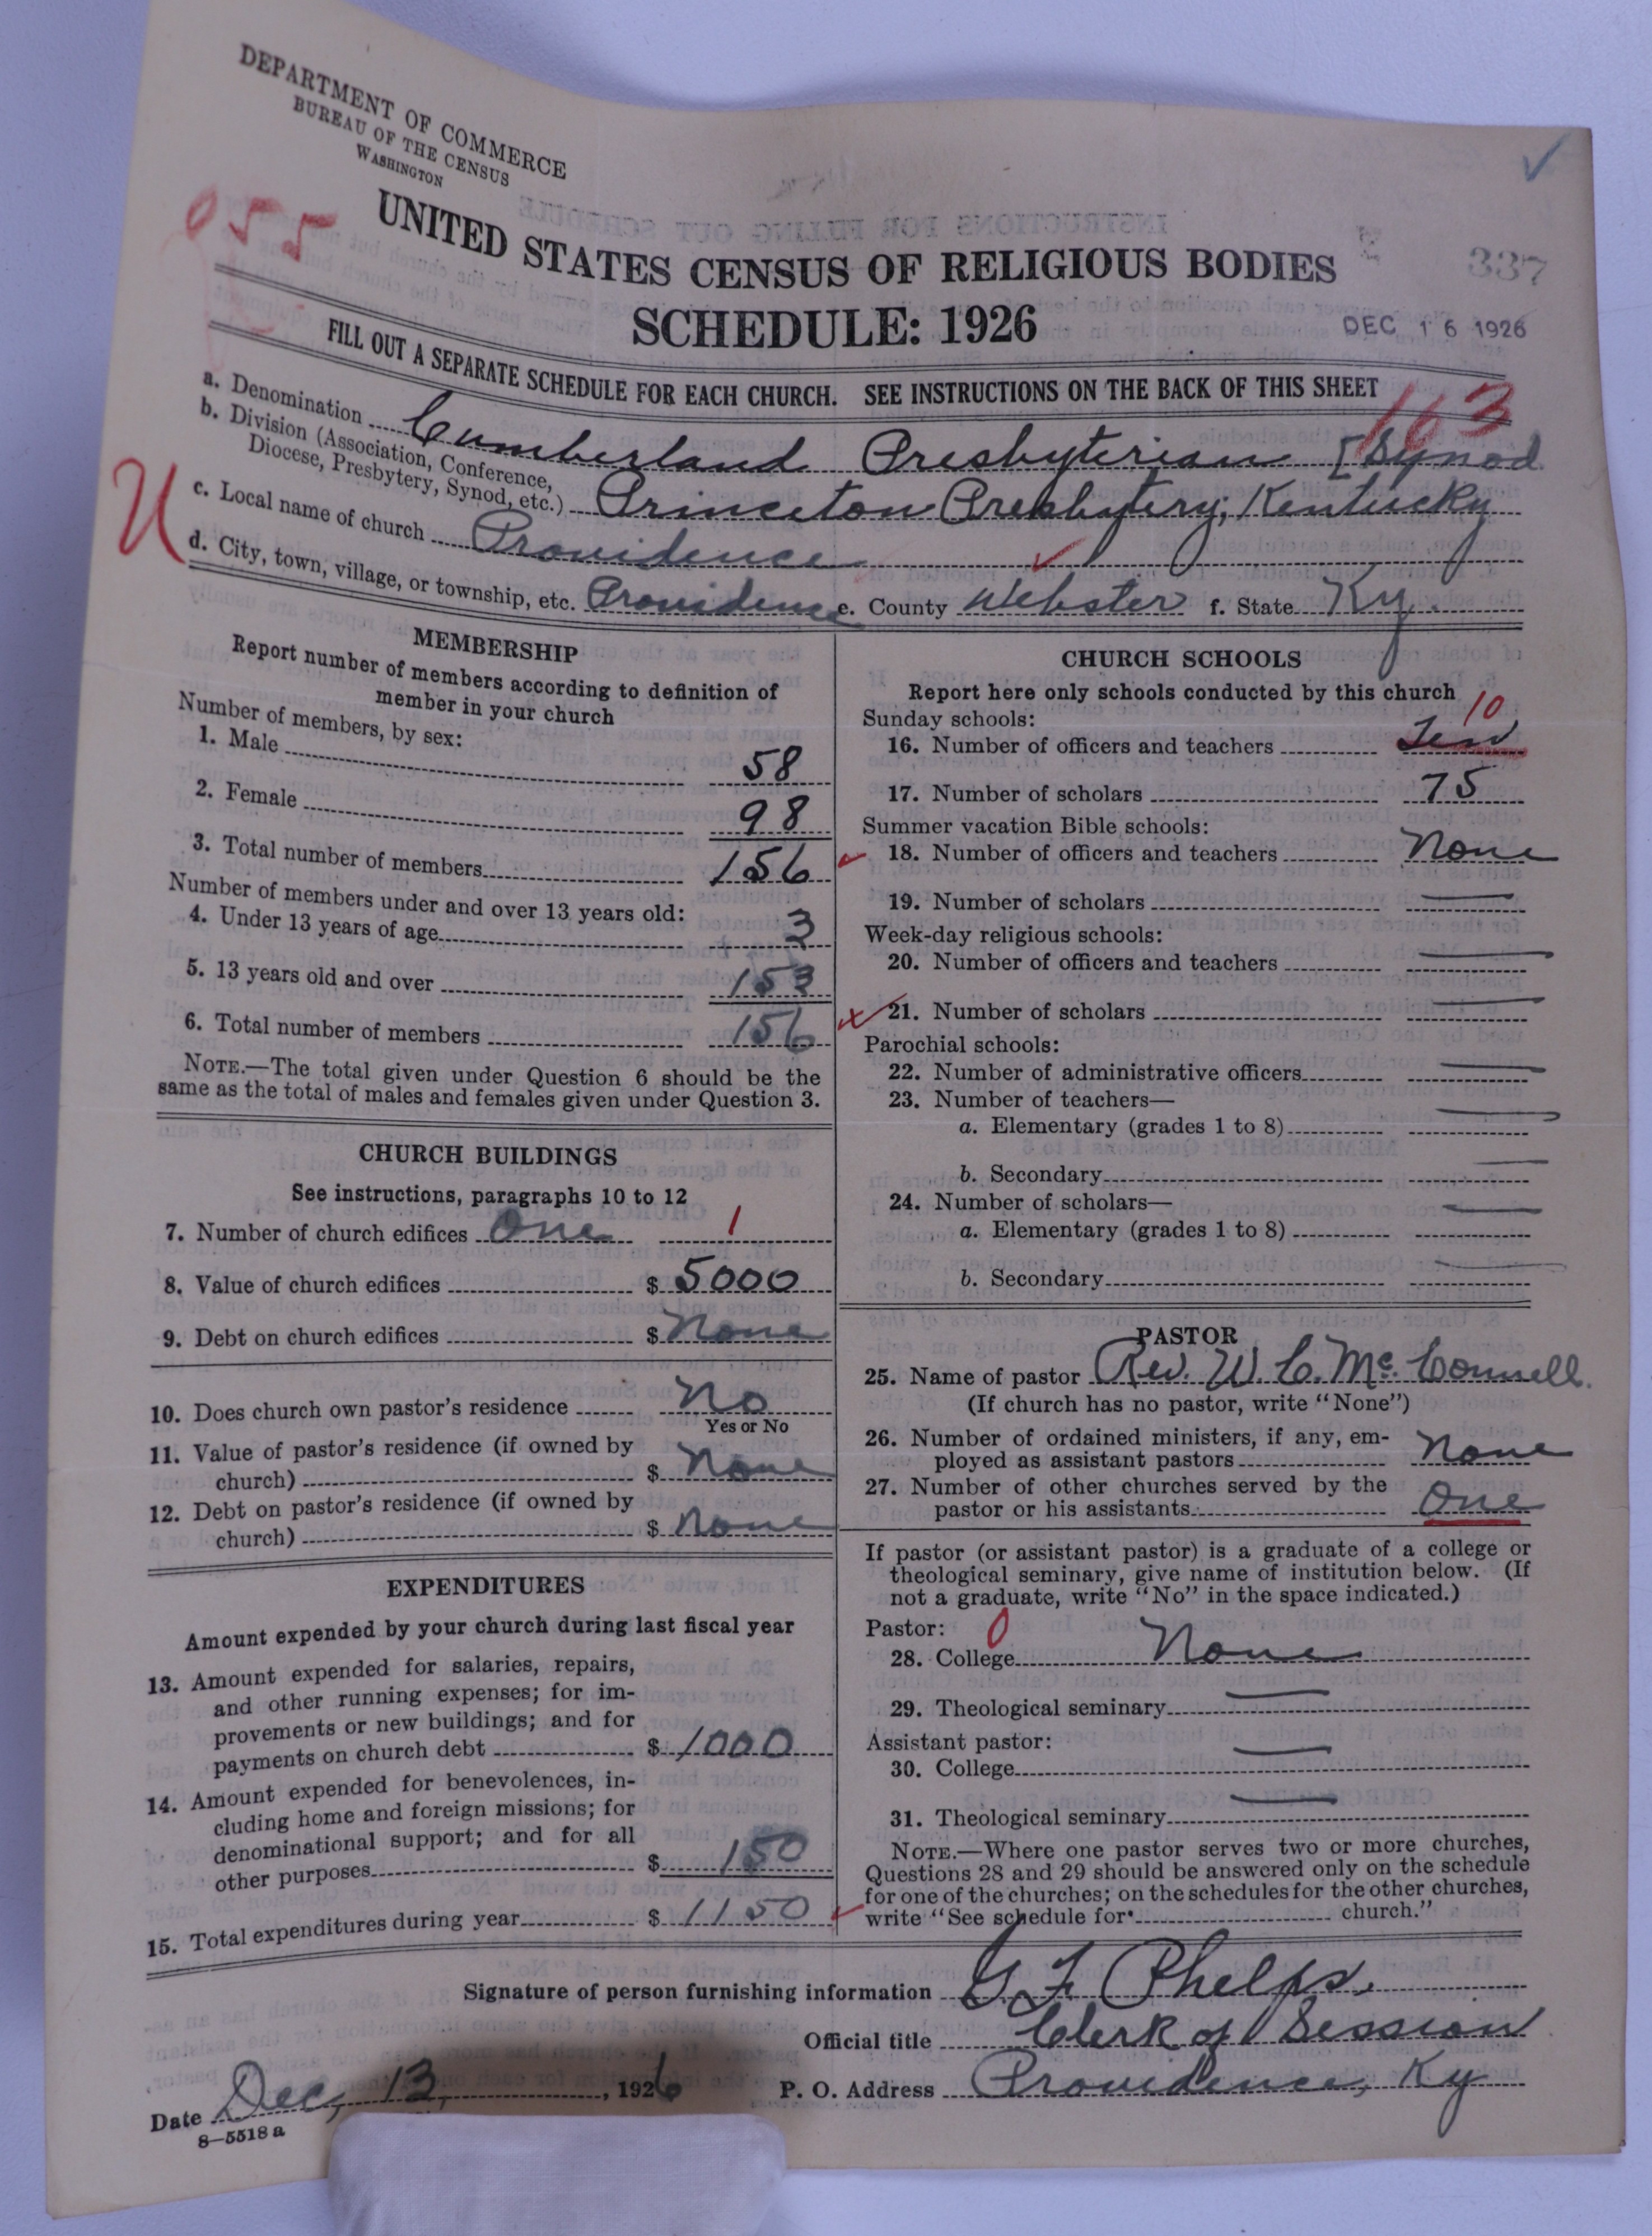 DEPARTMENT OF COMMERCE
BUREAU OF THE CENSUS
WASHINGTON
055
UNITED STATES CENSUS OF RELIGIOUS BODIES
337
SCHEDULE: 1926
DEC 16 1926
FILL OUT A SEPARATE SCHEDULE FOR EACH CHURCH. SEE INSTRUCTIONS ON THE BACK OF THIS SHEET
163
a. Denomination Cumberland Presbyterian [Synod
b. Division (Association, Conference,
Diocese, Presbytery, Synod, etc.) Princeton Presbytery; Kentucky
c. Local name of church Providence
U
d. City, town, village, or township, etc. Providence e. County Webster f. State Ky.
MEMBERSHIP
Report number of members according to definition of
member in your church
Number of members, by sex:
1. Male 58
2. Female 98
3. Total number of members 156
Number of members under and over 13 years old:
4. Under 13 years of age 3
5. 13 years old and over 153
6. Total number of members 156
NOTE.—The total given under Question 6 should be the
same as the total of males and females given under Question 3.
CHURCH BUILDINGS
See instructions, paragraphs 10 to 12
7. Number of church edifices One 1
8. Value of church edifices $ 5000
9. Debt on church edifices $ None
10. Does church own pastor's residence No
Yes or No
11. Value of pastor's residence (if owned by
church) $ None
12. Debt on pastor's residence (if owned by
church) $ None
EXPENDITURES
Amount expended by your church during last fiscal year
13. Amount expended for salaries, repairs,
and other running expenses; for im-
provements or new buildings; and for
payments on church debt $ 1000
14. Amount expended for benevolences, in-
cluding home and foreign missions; for
denominational support; and for all
other purposes $ 150
15. Total expenditures during year $ 1150
CHURCH SCHOOLS
Report here only schools conducted by this church
Sunday schools: 10
16. Number of officers and teachers Ten
17. Number of scholars 75
Summer vacation Bible schools:
18. Number of officers and teachers None
19. Number of scholars —
Week-day religious schools:
20. Number of officers and teachers —
21. Number of scholars —
Parochial schools:
22. Number of administrative officers —
23. Number of teachers—
a. Elementary (grades 1 to 8) —
b. Secondary —
24. Number of scholars—
a. Elementary (grades 1 to 8) —
b. Secondary —
PASTOR
25. Name of pastor Rev. W. C. McConnell.
(If church has no pastor, write "None")
26. Number of ordained ministers, if any, em-
ployed as assistant pastors None
27. Number of other churches served by the
pastor or his assistants One
If pastor (or assistant pastor) is a graduate of a college or
theological seminary, give name of institution below. (If
not a graduate, write "No" in the space indicated.)
Pastor: 0
28. College None
29. Theological seminary —
Assistant pastor:
30. College —
31. Theological seminary —
NOTE.—Where one pastor serves two or more churches,
Questions 28 and 29 should be answered only on the schedule
for one of the churches; on the schedules for the other churches,
write "See schedule for church."
Signature of person furnishing information G F Phelps.
Official title Clerk of Session
Date Dec, 13, 1926 P. O. Address Providence, Ky
8—5518 a